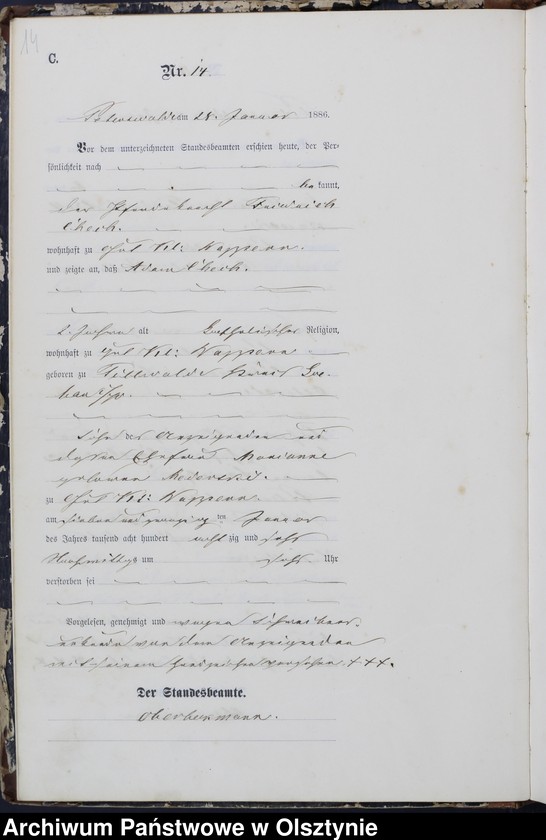 14
C.
Nr. 14.
Peterswalde am 28. Januar 1886.
Vor dem unterzeichneten Standesbeamten erschien heute, der Per-
sönlichkeit nach
be kannt,
der Pferdeknecht Friedrich
wohnhaft zu Gut Kl: Kappern.
und zeigte an, daß Adam
Jahre alt Katholischer Religion,
wohnhaft zu Gut Kl: Kappern
geboren zu Tillwalde Kreis
Sohn des Anzeigenden und
dessen Ehefrau Marianne
geborene
zu Gut Kl: Kappern.
am sieben und zwanzig ten Januar
des Jahres tausend acht hundert acht zig und sechs
Nachmittags um sechs Uhr
verstorben sei
Vorgelesen, genehmigt und wegen Schreibens-
unkunde von dem Anzeigenden
mit seinem Handzeichen versehen. +++.
Der Standesbeamte.
Archiwum Państwowe w Olsztynie